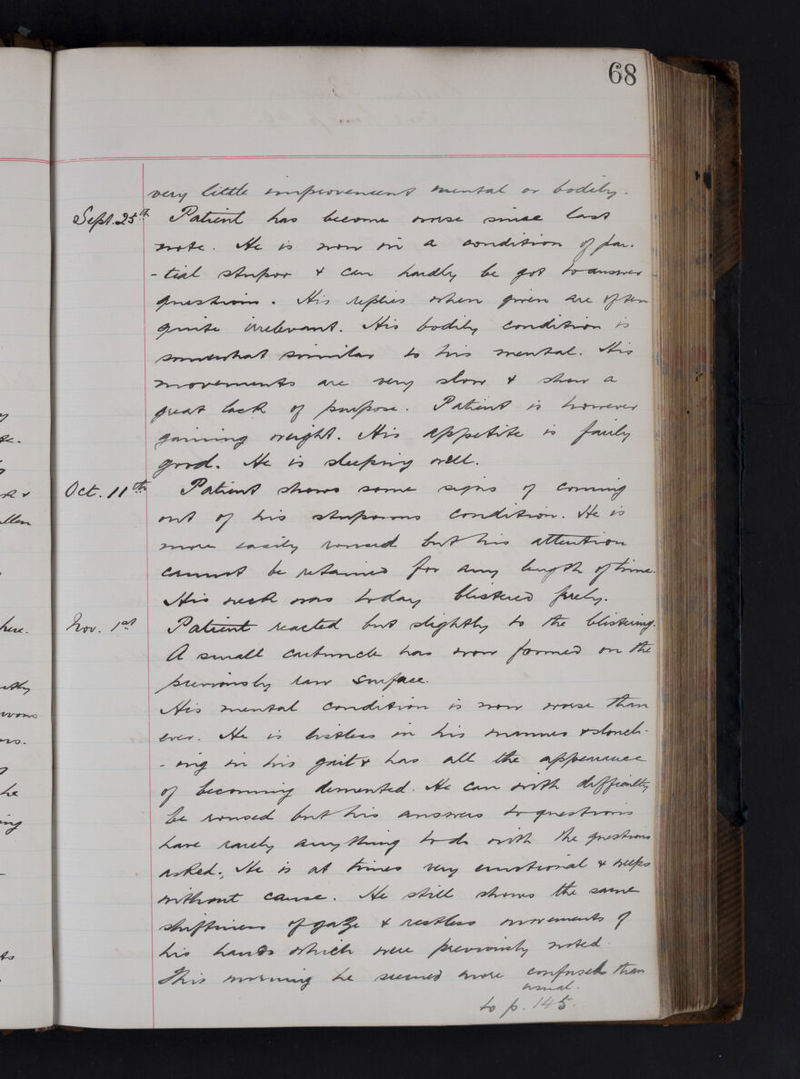 68
very little improvement mental or bodily.
Sept. 25th Patient has become worse since last
note. He is now in a condition of par-
-tial stupor & can hardly be got to answer
questions. His replies when given are often
quite irrelevant. His bodily condition is
somewhat similar to his mental. His
movements are very slow & show a
great lack of purpose. Patient is however
gaining weight. His appetite is fairly
good. He is sleeping well.
Oct. 11th Patient shows some signs of coming
out of his stuporous condition. He is
more easily roused but his attention
cannot be retained for any length of time.
His neck was today blistered freely.
Nov. 1st Patient reacted but slightly to the blistering.
A small carbuncle has now formed on the
previously raw surface.
His mental condition is now worse than
ever. He is listless in his manner & slouch-
-ing in his gait & has all the appearance
of becoming demented. He can with difficulty
be roused but his answers to questions
have rarely any thing to do with the questions
asked. He is at times very emotional & weeps
without cause. He still shows the same
shiftiness of gaze & restless movements of
his hands which were previously noted.
This morning he seemed more confused than
usual.
to p. 145.